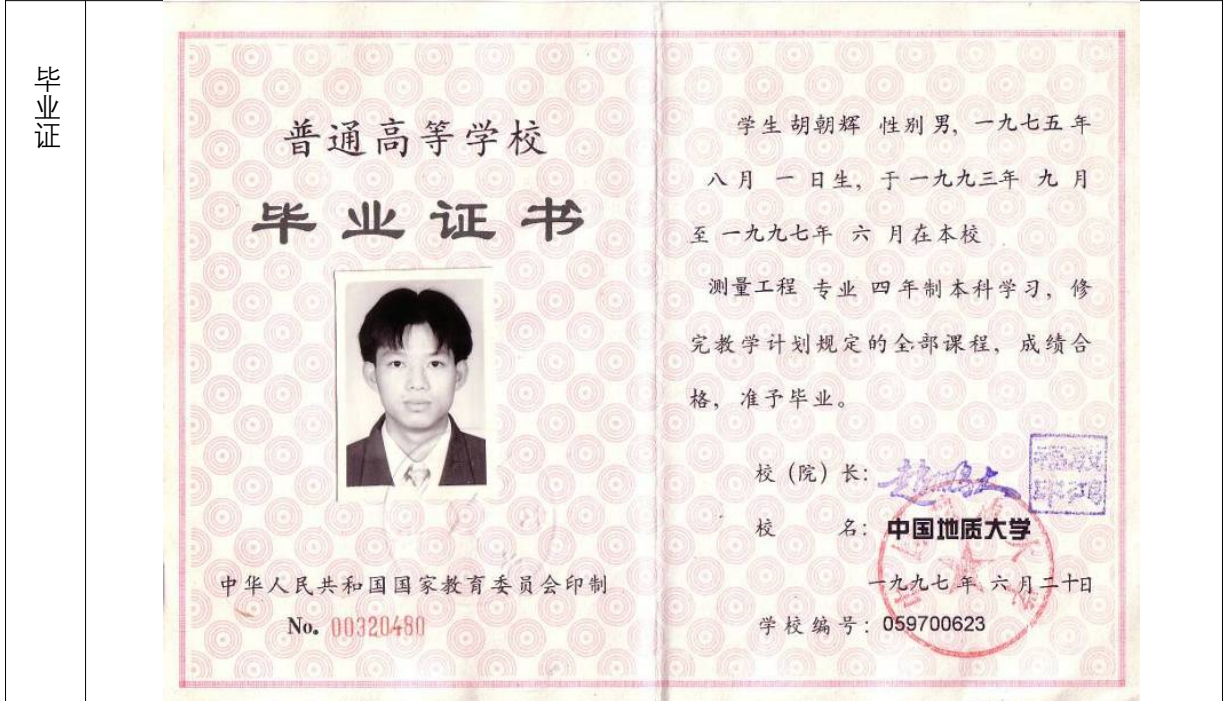 毕业证
普通高等学校
毕业证书
中华人民共和国国家教育委员会印制
No. 00320480
学生 胡朝辉 性别 男, 一九七五 年
八 月 一 日生, 于 一九九三年 九 月
至 一九九七年 六 月在本校
测量工程 专业 四 年制本科学习, 修
完教学计划规定的全部课程, 成绩合
格, 准予毕业。
校（院）长: 赵鹏大
校 名: 中国地质大学
一九九七 年 六 月二十日
学校编号: 059700623